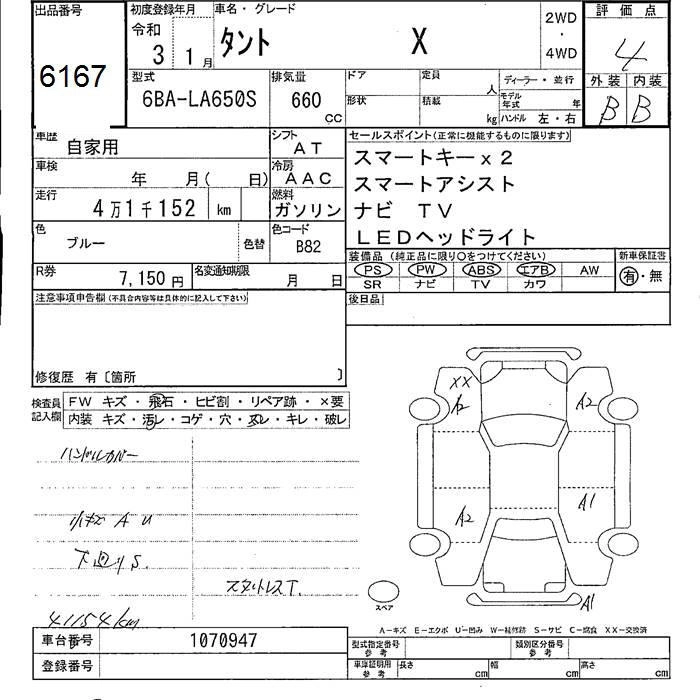 出品番号 初度登録年月 車名・グレード 2WD 評価点
令和
3 1月 タント X ・ 4
4WD
6167 外装 内装
型式 排気量 ドア 定員 人 ディーラー・並行 B B
6BA-LA650S 660 CC 形状 積載 kg モデル年式 年
ハンドル 左・右
車歴 自家用 シフト AT セールスポイント(正常に機能するものに限ります)
車検 年 月( 日) 冷房 AAC スマートキーx2
走行 4万1千152 km 燃料 ガソリン スマートアシスト
ナビ TV
色 ブルー 色替 色コード B82 LEDヘッドライト
装備品 (純正品に限り○をつけてください) 新車保証書
R券 7,150円 名変通知期限 月 日 PS PW ABS エアB AW 有・無
SR ナビ TV カワ
注意事項申告欄(不具合内容等は具体的に記入して下さい) 後日品
修復歴 有〔箇所 〕
検査員記入欄 FW キズ・飛石・ヒビ割・リペア跡・×要
内装 キズ・汚レ・コゲ・穴・スレ・キレ・破レ
XX
A2 A2
ハンドルカバー
A2 A1
小キズ A U
下回り S.
スタットレスT.
スペア A1
41154km
A-キズ E-エクボ U-凹み W-補修跡 S-サビ C-腐食 XX-交換済
車台番号 1070947 型式指定番号 参考 類別区分番号 参考
登録番号 車庫証明用 参考 長さ cm 幅 cm 高さ cm